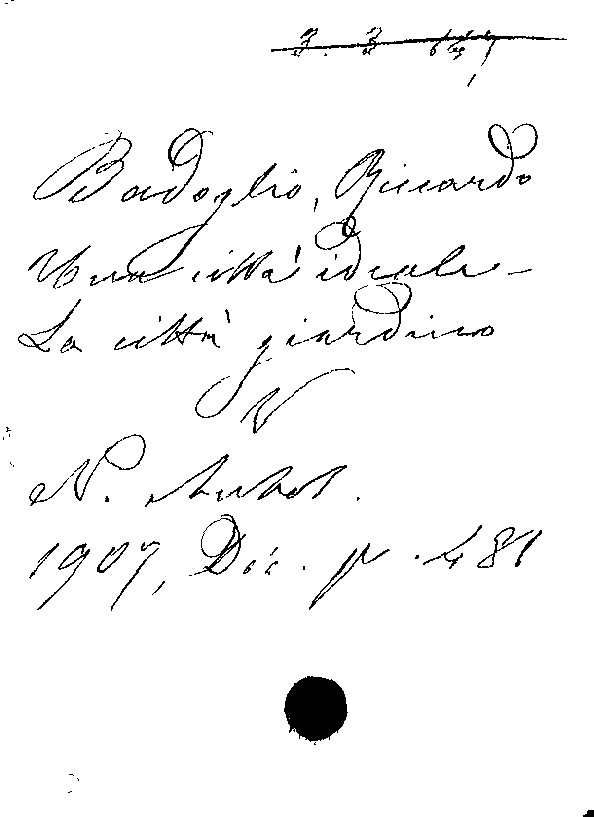 Badoglio, Riccardo
Una città ideale -
La città giardino
V
N. Antol.
1907, Dic. p. 481